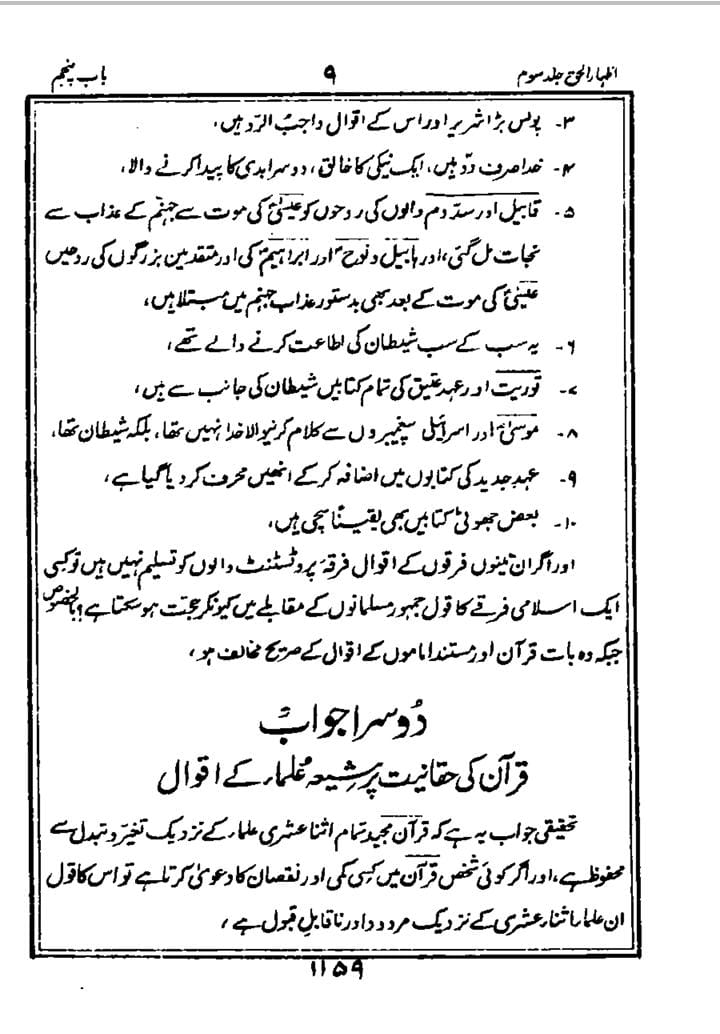 اظہار الحق جلد سوم ۹ باب پنجم
۳۔ پولس بڑا شریر اور اس کے اقوال واجب الرّد ہیں،
۴۔ خدا صرف دو ہیں، ایک نیکی کا خالق، دوسرا بدی کا پیدا کرنے والا،
۵۔ قابیل اور سدوم والوں کی روحوں کو عیسیٰؑ کی موت سے جہنم کے عذاب سے
نجات مل گئی، اور ہابیل و نوحؑ اور ابراہیمؑ کی اور متقدمین بزرگوں کی روحیں
عیسیٰؑ کی موت کے بعد بھی بدستور عذاب جہنم میں مبتلا ہیں،
۶۔ یہ سب کے سب شیطان کی اطاعت کرنے والے تھے،
۷۔ توریت اور عہد عتیق کی تمام کتابیں شیطان کی جانب سے ہیں،
۸۔ موسیٰؑ اور اسرائیلی پیغمبروں سے کلام کرنیوالا خدا نہیں تھا، بلکہ شیطان تھا،
۹۔ عہد جدید کی کتابوں میں اضافہ کرکے انھیں محرف کردیا گیا ہے،
۱۰۔ بعض جھوٹی کتابیں بھی یقیناً سچی ہیں،
اور اگر ان تینوں فرقوں کے اقوال فرقہ پروٹسٹنٹ والوں کو تسلیم نہیں ہیں تو کسی
ایک اسلامی فرقے کا قول جمہور مسلمانوں کے مقابلے میں کیونکر حجت ہوسکتا ہے؟ بالخصوص
جبکہ وہ بات قرآن اور مستند اماموں کے اقوال کے صریح مخالف ہو،
دُوسرا جواب
قرآن کی حقانیت پر شیعہ عُلماء کے اقوال
تحقیقی جواب یہ ہے کہ قرآن مجید تمام اثنا عشری علماء کے نزدیک تغیّر و تبدل سے
محفوظ ہے، اور اگر کوئی شخص قرآن میں کسی کمی اور نقصان کا دعویٰ کرتا ہے تو اس کا قول
ان علماء اثناء عشری کے نزدیک مردود اور ناقابلِ قبول ہے،
۱۱۵۹